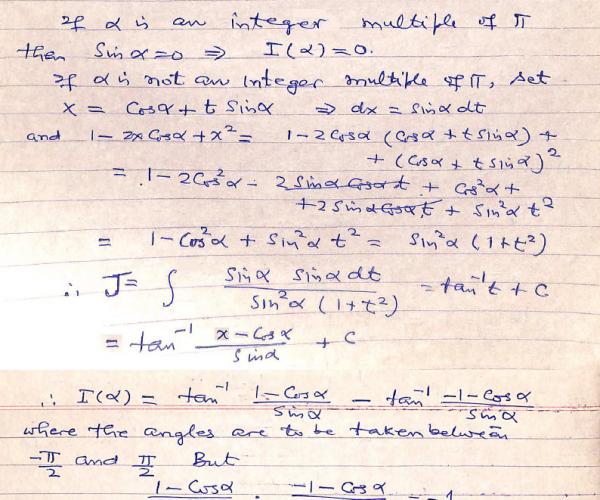 If α is an integer multiple of π
then Sin α = 0 ⇒ I(α) = 0.
If α is not an integer multiple of π, set
x = Cosα + t Sinα ⇒ dx = Sinα dt
and 1 - 2x Cosα + x² = 1 - 2Cosα (Cosα + t Sinα) +
+ (Cosα + t Sinα)²
= 1 - 2Cos²α - 2 Sinα Cosα t + Cos²α +
+ 2 Sinα Cosα t + Sin²α t²
= 1 - Cos²α + Sin²α t² = Sin²α (1+t²)
∴ J = ∫ Sinα Sinα dt / Sin²α (1+t²) = tan⁻¹ t + C
= tan⁻¹ x - Cosα / Sinα + C
∴ I(α) = tan⁻¹ 1 - Cosα / Sinα - tan⁻¹ -1 - Cosα / Sinα
where the angles are to be taken between
-π/2 and π/2 But
1 - Cosα . -1 - Cosα = -1